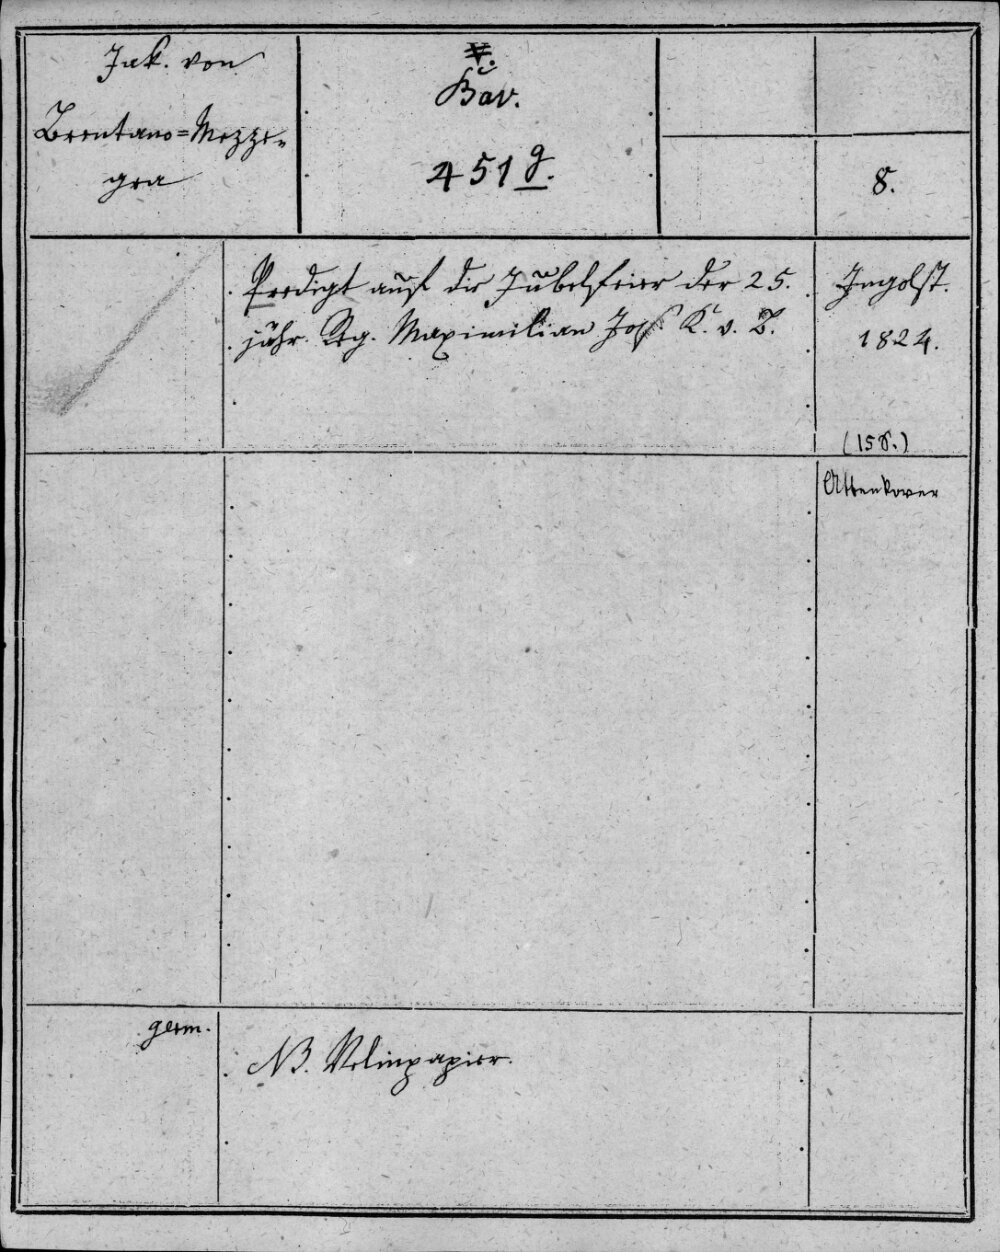 Jak. von
Brentano=Mezze-
gra
Bav.
451 g.
8.
Predigt auf die Jubelfeier der 25.
jähr. Rg. Maximilian Jos. K. v. B.
Ingolst.
1824.
(15 S.)
Attenkover
germ.
NB. Velinpapier.